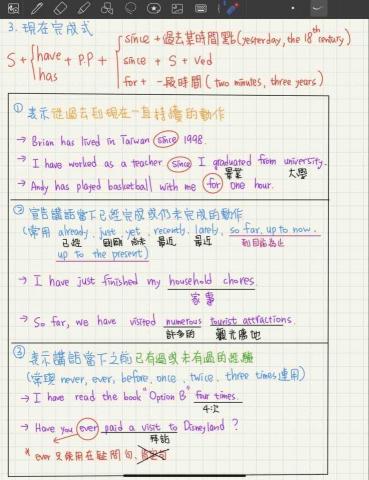 3. 現在完成式
S + have has + p.p +
since + 過去某時間點 (yesterday, the 18th century)
since + S + Ved
for + 一段時間 (two minutes, three years)
① 表示從過去到現在一直持續的動作
→ Brian has lived in Taiwan since 1998.
→ I have worked as a teacher since I graduated from university.
畢業 大學
→ Andy has played basketball with me for one hour.
② 宣告講話當下已經完成或仍未完成的動作
(常用 already, just, yet, recently, lately, so far, up to now,
已經 剛剛 尚未 最近 最近 到目前為止
up to the present)
→ I have just finished my household chores.
家事
→ So far, we have visited numerous tourist attractions.
許多的 觀光屬地
③ 表示講話當下之前已有過或未有過的經驗
(常與 never, ever, before, once, twice, three times 連用)
→ I have read the book "Option B" four times.
4次
→ Have you ever paid a visit to Disneyland?
拜訪
* ever 只使用在疑問句,